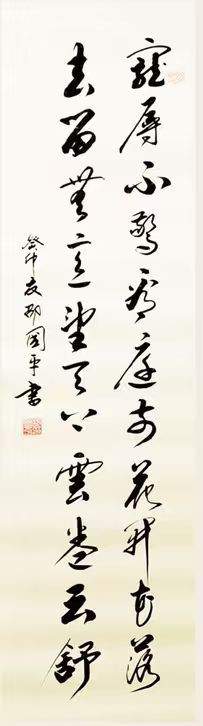 寵辱不驚看庭前花開花落
去留無意望天上雲卷云舒
癸卯夏邢國平書